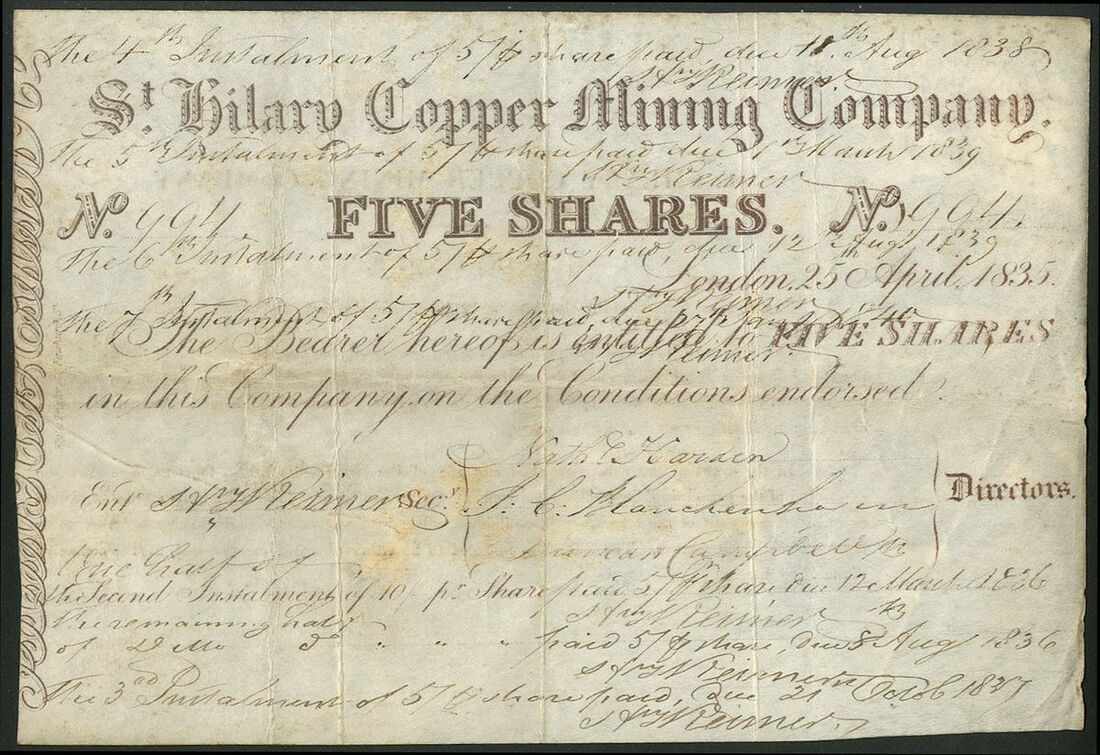 The 4th Instalment of 5/ ⅌ share paid, due 11th Aug 1838
Hry W Reimer
St. Hilary Copper Mining Company.
The 5th Instalment of 5/ ⅌ share paid due 1st March 1839
Hry W Reimer
No. 994 FIVE SHARES. No. 994.
The 6th Instalment of 5/ ⅌ share paid, due 12th Augt 1839
London, 25 April, 1835.
Hry W Reimer
The 7th Instalment of 5/ ⅌ share paid, due
The Bearer hereof is entitled to FIVE SHARES
Reimer
in this Company, on the Conditions endorsed.
Harden
Entd. Hry W Reimer Secy. J. C. Directors.
Duncan Campbell
One half of
the Second Instalment of 10/- pr. Share paid 5/ ⅌ share due 12 March 1836
Hry W Reimer
The remaining half
of Do " " " paid 5/ ⅌ share, due 8th Aug 1836
Hry W Reimer
The 3rd Instalment of 5/ ⅌ share paid, due 21 Octob 1837
Hry W Reimer